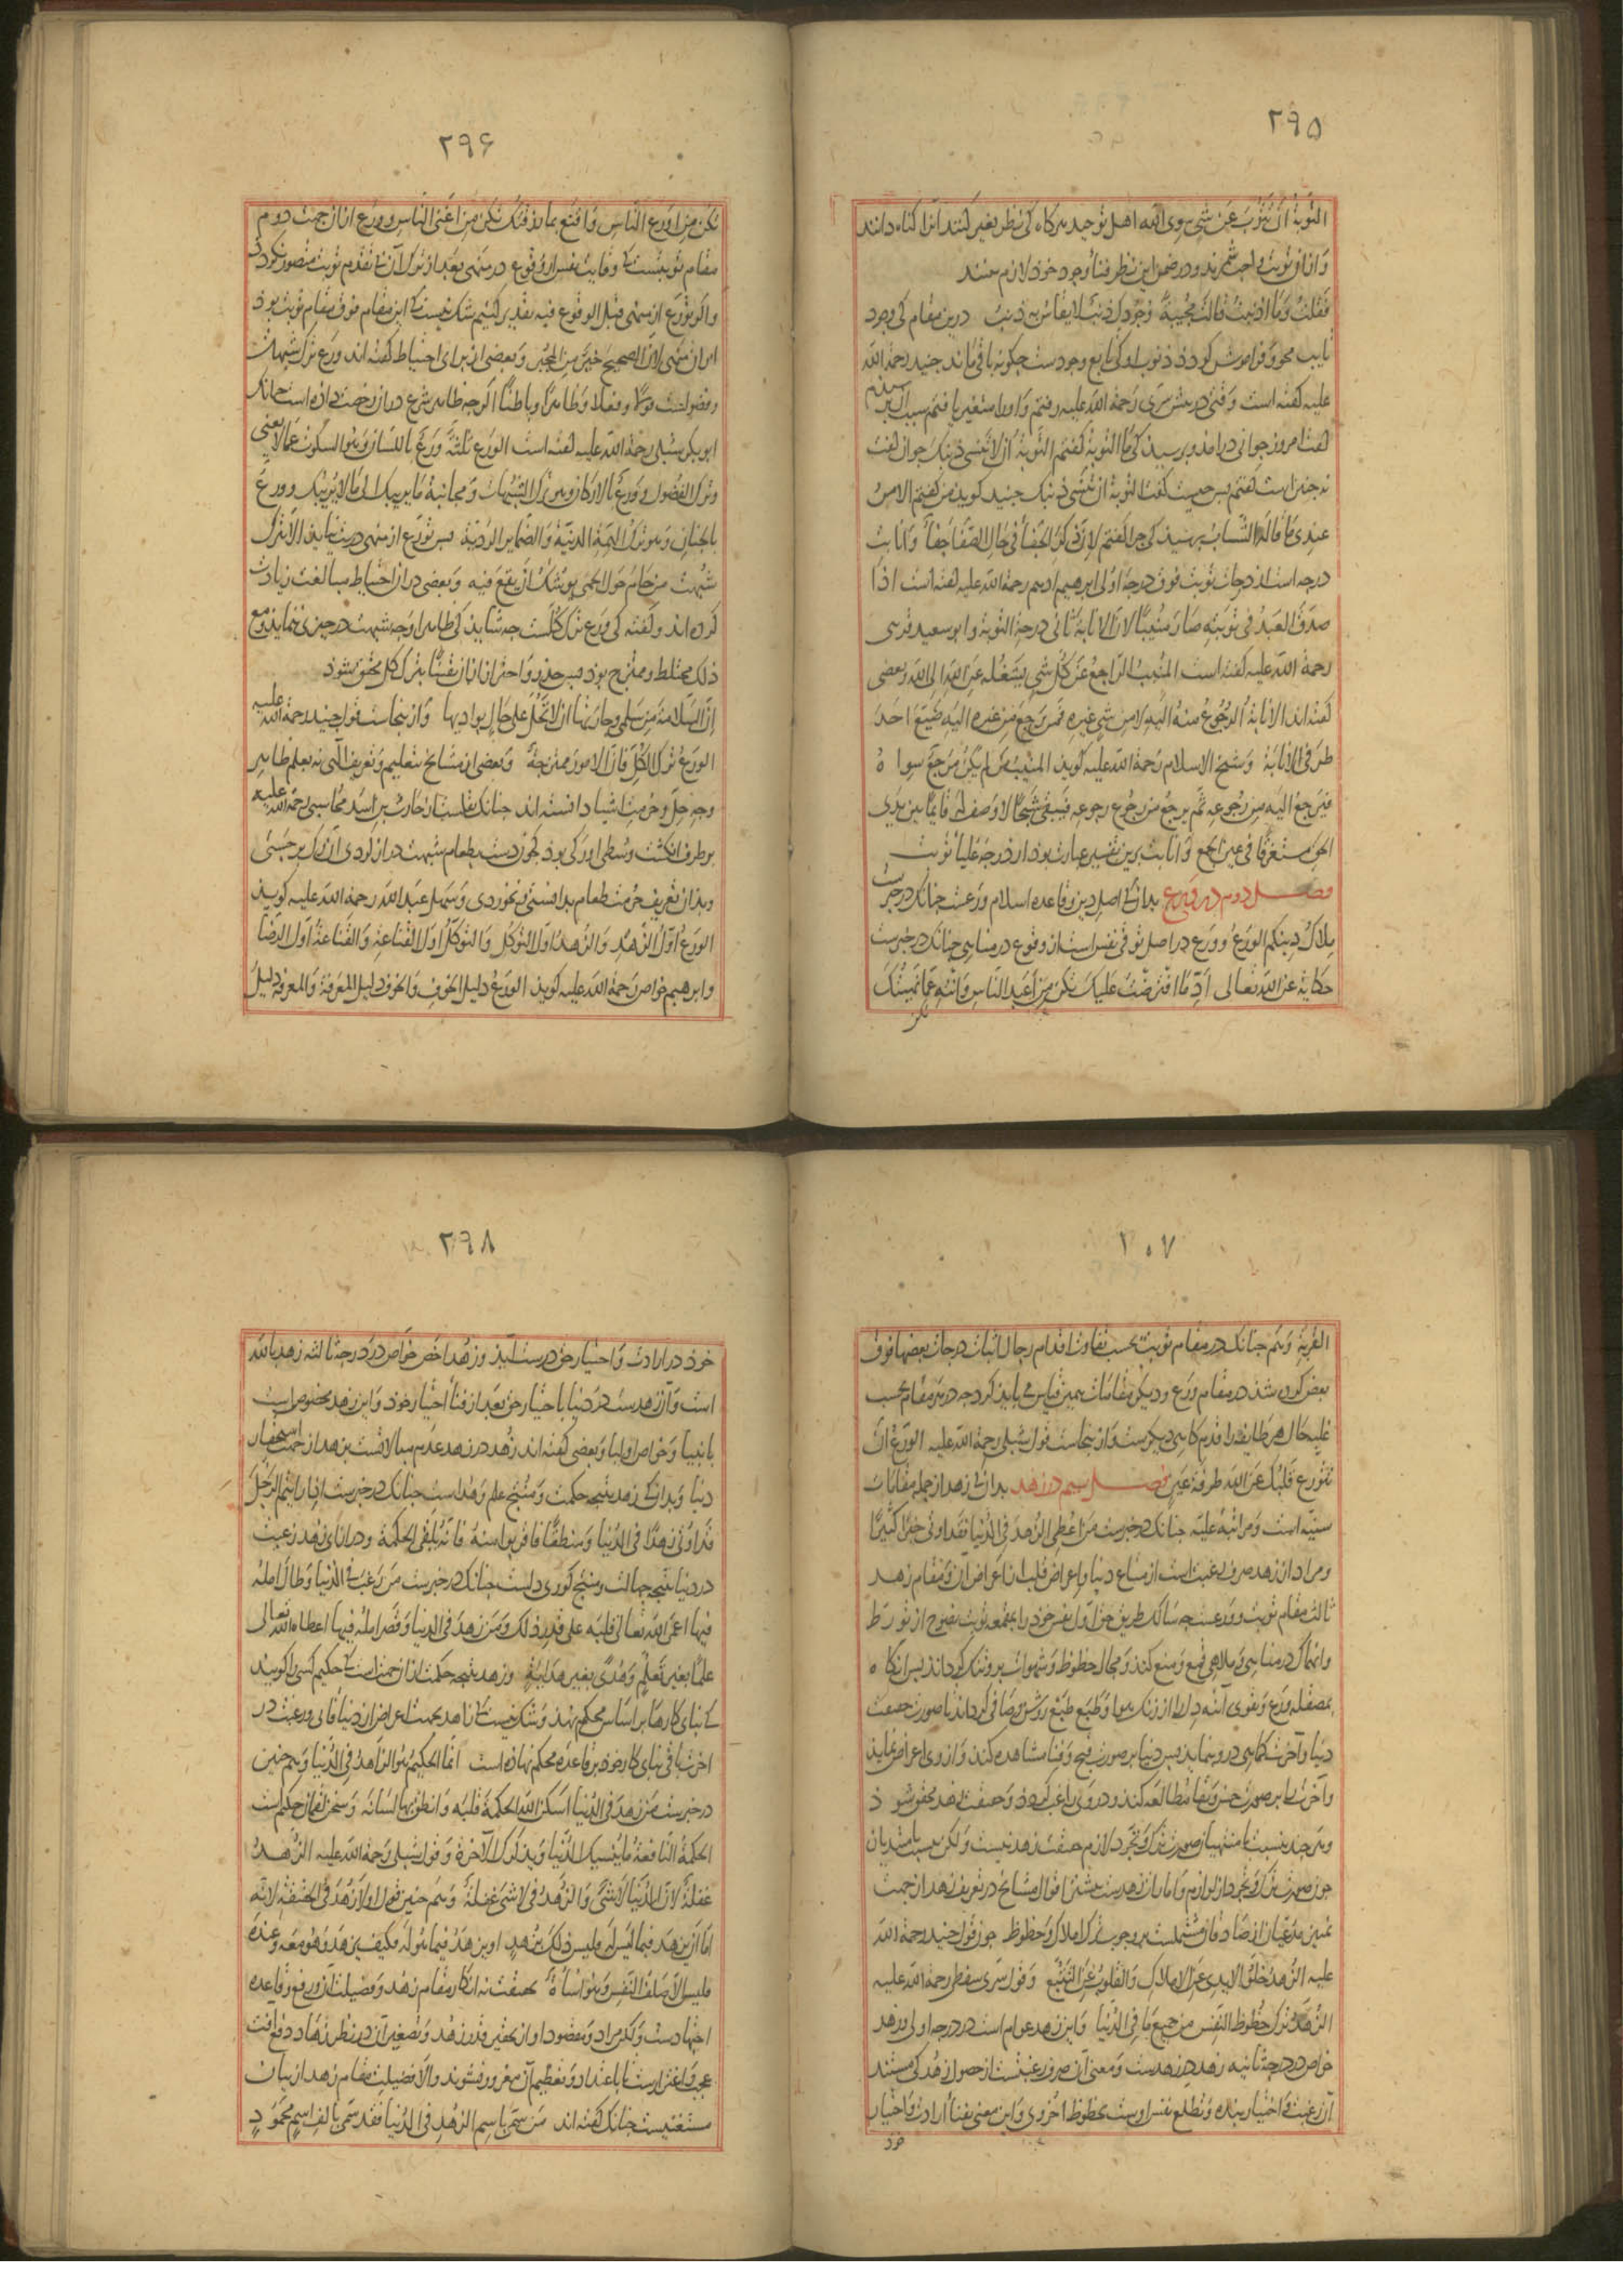 ۲۹۵
التَّوبَةُ اَنْ تَتُوبَ عَن شَیٍ سِوَی اللّه اهل توحید هرگاه کی نظر بغیر کنند آنرا گناه دانند
وَ از ان توبت واجب شمرند و در ضمن این نظر فنا وجود خود لازم بینند
فَقُلتُ وَمَا اَذنَبتُ قالَت مُجیبَةً وُجُودُکَ ذَنبٌ لا یُقاسُ بِهِ ذنبُ درین مقام کی وجود
تایب محو و فراموش کردد ذنوب او کی تابع وجودست چکونه باقی ماند جنید رحمة اللّه
علیه گفته است وقتی در پیش سری رَحمة اللّه علیه رفتم وَ او را متغیر یافتم سبب آن پرسیدم
گفت امروز جوانی درامد و پرسید کی مَا التوبة گفتم التَّوبةُ اَن لا تَنسی ذنبک جوان گفت
نه جنین است گفتم پس چیست گفت التوبة اَن تَنسی ذنبک جنید کوید من گفتم الامرُ
عِندی مَا قالَه الشَّابُ پرسید کی چرا گفتم لِانَّ ذکرَ الجَفاءِ فی حَالِ الصَّفَا جَفاءٌ وَ انابت
درجه است از درجات توبت فوق درجهٔ اولی ابرهیم ادهم رحمة اللّه علیه گفته است اذا
صَدَقَ العَبدُ فی تَوبَتِهِ صَارَ مُنیباً لانَّ الانابَةَ ثانی درجةِ التوبة و ابو سعید قرشی
رحمة اللّه علیه گفته است المُنیبُ الراجعُ عَن کُلِّ شیٍ یَشغلُه عَن اللّهِ الی اللّه و بعضی
گفته اند الانابةُ الرجُوعُ منهُ الیَهِ لا مِن شیٍ غیرِه فمَن رَجعَ مِن غیرِه الیَهِ ضَیَّعَ احَدَ
طرَفی الاِنابَة وَ شیخ الاسلام رَحمة اللّه علیه کوید المنیبُ مَن لم یکُن مَرجعٌ سِواهُ
فیَرجعُ الیَهِ مِن رُجوعهِ ثُم یرجعُ مِن رجُوعِ رجوعه فیَبقی شبَحًا لا وَصفَ لَهُ قایمًا بین یَدی
الحق مستغرقا فی عین الجمع وَ انابت برین تفسیر عبارت بود از درجه عُلیا توبت
فصل دوم در ورع بدانک اصل دین و قاعده اسلام ورعست چنانک در خبرست
مِلاکُ دینکم الورَعُ و ورَع در اصل توقی نفس است از وقوع در مناهی چنانک در خبرست
حکایة عن اللّه تعالی اَدِّ مَا افترَضتُ عَلیکَ تکن مِن اَعبَدِ النَّاسِ وَ انتَهِ عَمَّا نهَیتُک
تکن
۲۹۶
تکن مِن اورَعِ النَّاس وَ اقنَع بما رزَقتُک تکن مِن اَغنَی النَّاس و ورَع از ان جهت دوم
مقام توبتست کی وقایت نفس از وقوع در منهی بعد از ترک آن بی تقدم توبت متصور نکردد
و اگر تورّع از منهی قبل الوقوع فیه تقدیر کنیم شک نیست کی این مقام فوق مقام توبت بود
ابوبکر شبلی رحمة اللّه علیه گفته است الورَع ثلثةٌ وَرَعٌ باللسانِ وَهو السکُوت عَمَّا لا یَعنی
وَ ترک الفضُول وَ وَرعٌ بالارکانِ وَهو ترک الشبُهات وَ مجانبة مَا یریبک الی مَا لا یُریبُک و ورعٌ
بالجنانِ وَهو ترک الهِمَّة الدنیّة وَ الضّمایر الردیّة پس تورّع از منهی درست نیاید الا بترک
شبُهت مَن حَامَ حَولَ الحِمَی یوشک اَن یقَعَ فیه وَ بعضی در ان احتیاط مبالغت زیادت
کرده اند و گفته کی ورَع ترک کلّست چه شاید کی ظاهرا وَجه شبهت در چیزی ننماید وَ مَع
ذلک مختلط و ممتزج بود پس حذر و احتراز از ان یقینًا بترک کل محقق شود
اِنَّ السَّلامَةَ مِن سَلمی وجارَتها اَن لا تَحُلَّ علی حَالٍ بوادیها وَ از ینجاست قول جنید رحمة اللّه علیه
الورَعُ ترک الکلِّ فانّ الامور ممتزجةٌ وَ بعضی از مشایخ بتعلیم وَ تعریف الهی نه بعلم ظاهر
وجهِ حِلّ وَ حُرمت اشیا دانسته اند چنانک نقلست از حَارث بن اسَد مُحاسبی رحمة اللّه علیه
بر طرف انگشت وسُطی او رَکی بود کی چون دست بطعام شبهت دراز کردی آن رگ برجَستی
و بدان تعریف حُرمت طعام بدانستی و نخوردی وَ سَهل عبد اللّه رحمة اللّه علیه کوید
الورَعُ اوّلُ الزّهدِ وَ الزّهدُ اوّل التوکل وَ التوکّلُ اوّل القناعةِ وَ القَناعَةُ اوّل الرِّضَا
و ابرهیم خواص رَحمة اللّه علیه کوید الورَعُ دلیلُ الخوفِ وَ الخوف دلیل المَعرفةِ وَ المعرفة دلیلُ
۲۰۷
القُربَةِ وَ هَم چنانک در مقام توبت بحسَب تفاوت اقدام رجال اثبات درجات بعضها فوق
بعض کرده شد در مقام ورَع و دیگر مقامات همین قیاس می باید کرد چه در هر مقام بحسب
غلبهٔ حَال هر طایفه را قدم کاهی دیگرست وَ از ینجاست قول شبلی رحمة اللّه علیه الورَع اَن
تتورع قلبُک عَن اللّه طرفةَ عَین فصل سیم در زهد بدانک زهد از جمله مقامات
سنیّه است وَ مراتب علیّه چنانک در خبرست مَن اُعطِیَ الزُّهدَ فی الدُّنیا فقَد اوتی خیرًا کثیرًا
و مراد از زهد صرف رغبت است از متاع دنیا و اعراض قلب از اعراض آن وَ مقام زهد
ثالث مقام توبت و ورعست چه سالک طریق حق اوّل نفس خود را بمقمعهٔ توبت نصوح از تورّط
وانهماک در مناهی وَ ملاهی قمع وَ منع کند وَ مجال حظوظ وَ شهوات برو تنک کرداند پس انگاه
بمصقلهٔ ورَع وَ تقوی آینه دل را از زنگ هوا وَ طبَع روشن و صافی کرداند تا صورت حقیقت
دنیا و آخرت کماهی درو بنماید پس دنیا بر صورت قبح وَ فنا مشاهده کند وَ از وی اعراض نماید
وَ اخرت را بر صورت حسن وَ بقا مطالعه کند و درو راغب کردد وَ حقیقت زهد محقق شود
چون صورت ترک وَ تجرد از لوازم وَ امارات زهدست بیشتر اقوال مشایخ در تعریف زهد از جهت
تمییز مدّعیان از صادقان مشتملست بر وجوب ترک املاک وَ حظوظ چون قول جنید رحمة اللّه
علیه الزهدُ خُلُوُّ الایدی عن الاملاکِ وَ القلوبِ عَنِ التتبُّعِ وَ قول سَری سقطی رحمة اللّه علیه
الزُّهدُ ترکُ حُظُوظِ النَّفسِ مِن جَمیعِ مَا فی الدُّنیا وَ این زهد عَوام است در درجهٔ اولی و زهد
خواص در درجهٔ ثانیه زهد در زهدست وَ معنی آن صرف رغبتست از حصول زُهد کی مستند
آن رغبت وَ اختیار بنده وَ تطلع نفس اوست بحظوظ اُخروی وَ این معنی بفناء ارادت وَ اختیار
خود
۲۹۸
خود در ارادت وَ اختیار حق درست آید وَ زُهد اخصّ خواص در درجهٔ ثالثه زهد باللّه
است وَ آن زهدست در دنیا باختیار حق بعد از فناء اختیار خود وَ این زهد مخصوص است
بانبیا وَ خواص اولیا وَ بعضی گفته اند زهد در زهد عدم مبالاتست بزهد از جهت استحقار
دنیا وَ بدانک زهد نتیجهٔ حکمت وَ مُنتج علم وَ هُداست چنانک در خبرست اذا رایتُم الرجُلَ
قد اوتی زهدًا فی الدُّنیا وَ منطقًا فاقربوا منهُ فانَّه یُلقَّی الحکمَة و در ازای زُهد رغبت
در دنیا نتیجهٔ جهالت و منتج کوری دلست چنانک در خبرست مَن رَغبَ فی الدُّنیا وَ طالَ املهُ
فیها اعمَی اللّه تعالی قلبَه علی قدر ذلک وَ مَن زهدَ فی الدنیا وَ قصَّر املهُ فیها اعطاه اللّه تعالی
علمًا بغیر تعَلُّمٍ وَ هُدًی بغیر هدَایَةٍ و زهد نتیجهٔ حکمت از ان جهت است کی حکیم کسی را کویند
کی بنای کارها بر اسَاس محکم نهد وَ شک نیست کی زاهد بجهت اعراض از دنیا فانی و رغبت در
اخرت باقی بنای کار خود بر قاعدهٔ محکم نهاده است انّما الحکیمُ هُو الزاهدُ فی الدُّنیا وَ هم چنین
در خبرست مَن زهدَ فی الدُّنیا اَسکنَ اللّهُ الحکمةَ قلبَه وَ انطق بها لسَانهُ وَ سخن لقمان حکیم است
الحکمةُ النافعَةُ مَا یُنسیک الدّنیا وَ یذکّرکَ الآخرَة وَ قول شبلی رحمة اللّه علیه الزّهدُ
غفلةٌ لانّ الدُّنیا لاشَیٌ وَ الزهدُ فی لاشی غفلةٌ وَ هم چنین قول او لا زهدَ فی الحقیقةِ لانّه
امّا اَن یزهَد فیما لیسَ لهُ فلیسَ ذلک بزهدٍ او یزهدُ فیما هُو لَهُ فکیفَ یزهدُ وَهُو معَهُ وَ عندَه
فلیسَ الا ظلف النَّفس وَ مُواساةٌ بحقیقت نه انکار مقام زهد وَ فضیلت آن و رفع قاعده
اجتهادست وَ لکن مراد وَ مقصود او از تحقیر قدر زهد وَ تصغیر آن در نظر زُهّاد دفع افت
عجب وَ اغترارست تا باعتداد وَ تعظیم آن مغرور نشوند وَ الا فضیلت مقام زهد از بیان
مستغنیست چنانک گفته اند مَن سَمّی باسمِ الزهدِ فی الدُّنیا فقد سَمّی بالفِ اسمٍ محمُودٍ